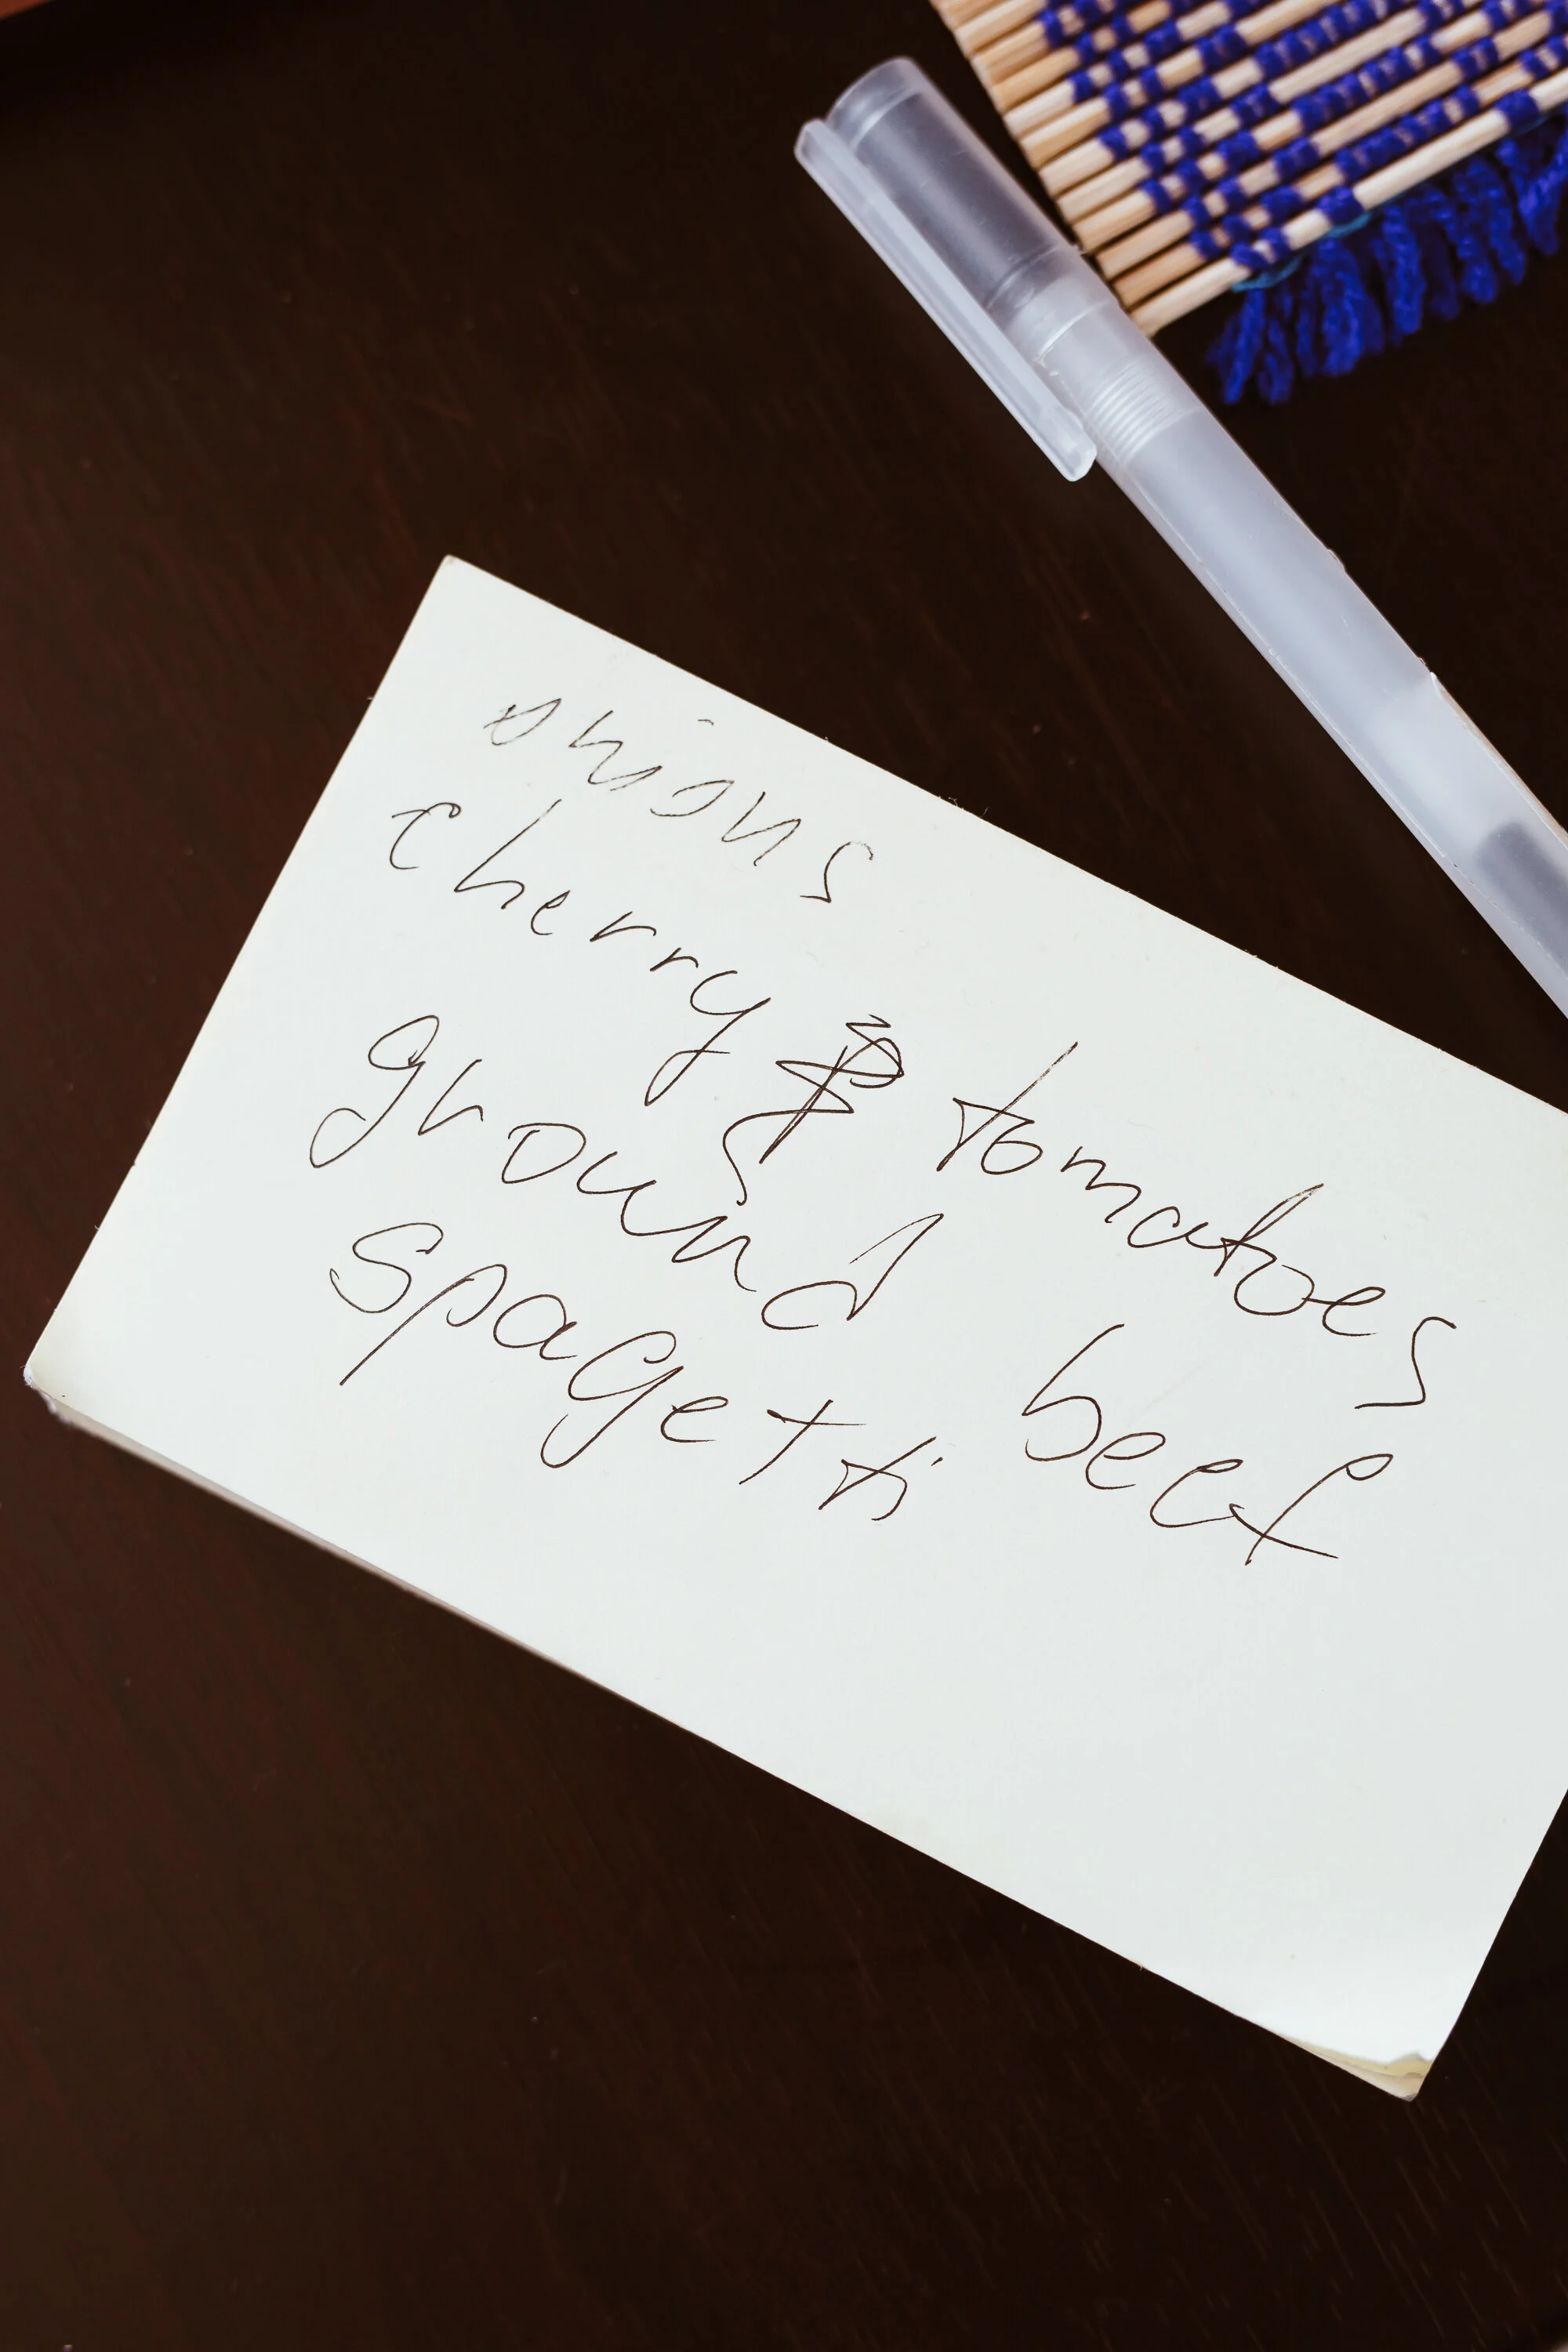 onions
cherry tomatoes
ground beef
spagetti